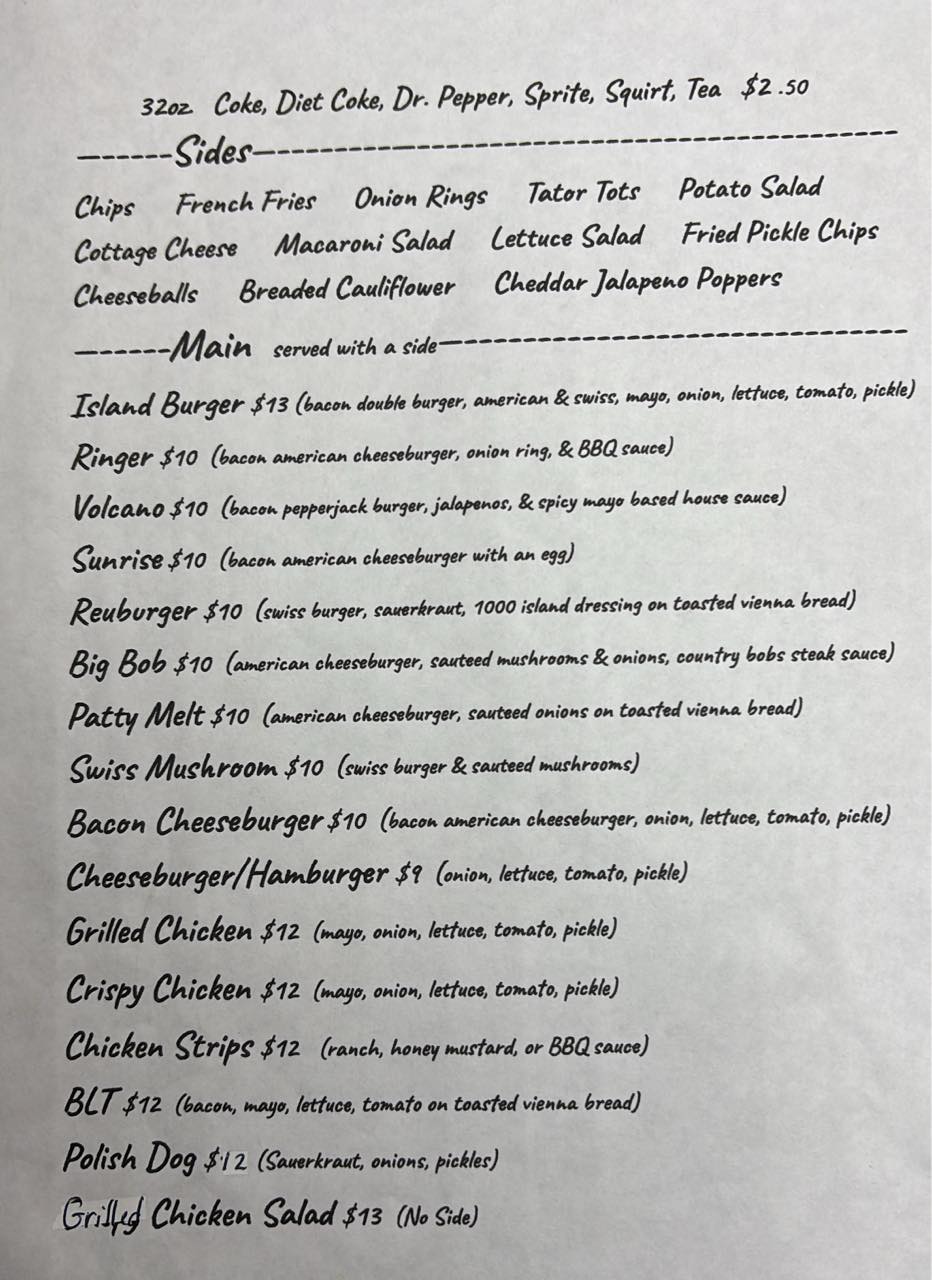 32oz Coke, Diet Coke, Dr. Pepper, Sprite, Squirt, Tea $2.50
------Sides------------------------------------------
Chips French Fries Onion Rings Tator Tots Potato Salad
Cottage Cheese Macaroni Salad Lettuce Salad Fried Pickle Chips
Cheeseballs Breaded Cauliflower Cheddar Jalapeno Poppers
------Main served with a side------------------------------
Island Burger $13 (bacon double burger, american & swiss, mayo, onion, lettuce, tomato, pickle)
Ringer $10 (bacon american cheeseburger, onion ring, & BBQ sauce)
Volcano $10 (bacon pepperjack burger, jalapenos, & spicy mayo based house sauce)
Sunrise $10 (bacon american cheeseburger with an egg)
Reuburger $10 (swiss burger, sauerkraut, 1000 island dressing on toasted vienna bread)
Big Bob $10 (american cheeseburger, sauteed mushrooms & onions, country bobs steak sauce)
Patty Melt $10 (american cheeseburger, sauteed onions on toasted vienna bread)
Swiss Mushroom $10 (swiss burger & sauteed mushrooms)
Bacon Cheeseburger $10 (bacon american cheeseburger, onion, lettuce, tomato, pickle)
Cheeseburger/Hamburger $9 (onion, lettuce, tomato, pickle)
Grilled Chicken $12 (mayo, onion, lettuce, tomato, pickle)
Crispy Chicken $12 (mayo, onion, lettuce, tomato, pickle)
Chicken Strips $12 (ranch, honey mustard, or BBQ sauce)
BLT $12 (bacon, mayo, lettuce, tomato on toasted vienna bread)
Polish Dog $12 (Sauerkraut, onions, pickles)
Grilled Chicken Salad $13 (No Side)